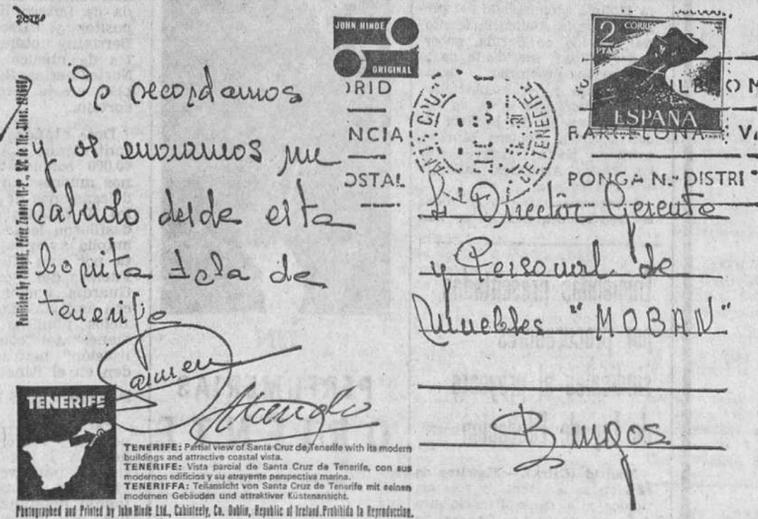 2C15
JOHN HINDE
ORIGINAL
2
PTAS
CORREOS
ESPAÑA
DRID
NCIA
OSTAL
SANTA CRUZ
DE TENERIFE
BILBAO M
BARCELONA VA
PONGA N.º DISTRI
Os recordamos
y os enviamos un
saludo desde esta
bonita Isla de
tenerife
Carmen
Sr. Director Gerente
y Personal de
Muebles "MOBAN"
Burgos
TENERIFE
TENERIFE: Partial view of Santa Cruz de Tenerife with its modern
buildings and attractive coastal vista.
TENERIFE: Vista parcial de Santa Cruz de Tenerife, con sus
modernos edificios y su atrayente perspectiva marina.
TENERIFFA: Teilansicht von Santa Cruz de Tenerife mit seinen
modernen Gebäuden und attraktiver Küstenansicht.
Photographed and Printed by John Hinde Ltd., Cabinteely, Co. Dublin, Republic of Ireland. Prohibida la Reproduccion.